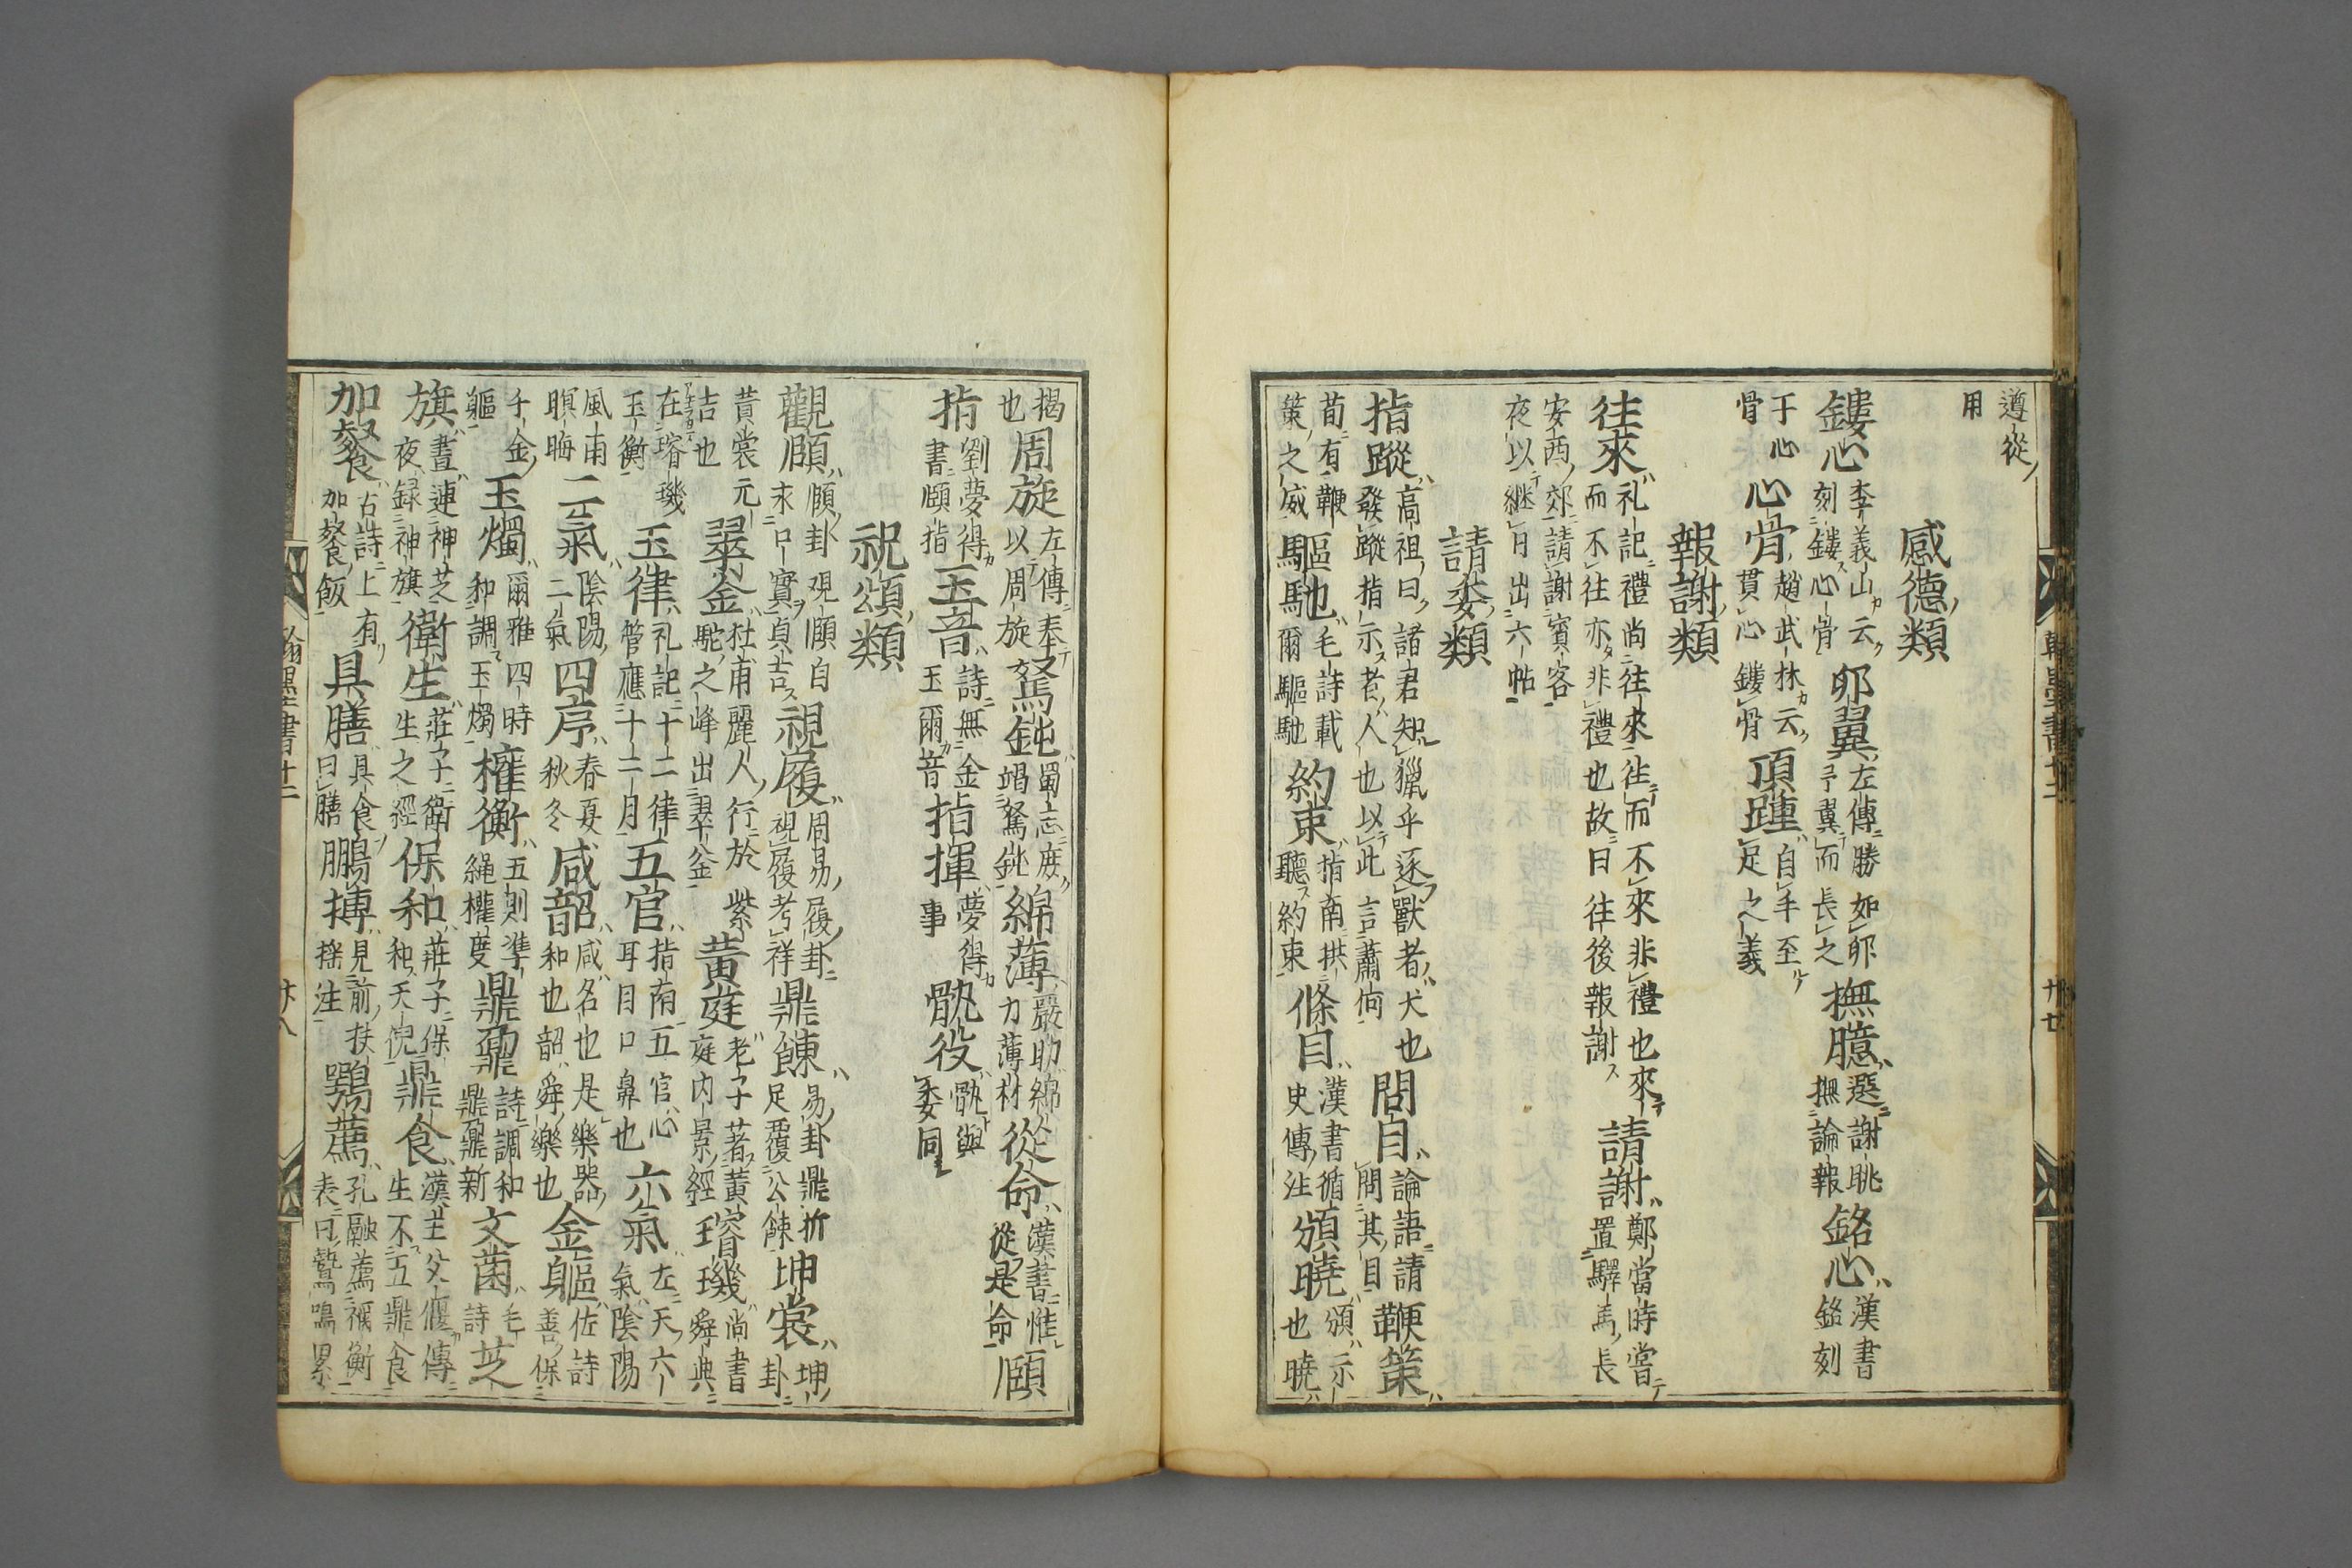 遵從
用
感德類
鏤心 李義山云刻鏤心骨 卵翼 左傳勝如卵予翼而長之 撫臆 選謝眺撫論報 銘心 漢書銘刻
于心骨 心骨 趙武林云貫心鏤骨 頂踵 自手至足之義
報謝類
往來 礼記禮尚往來往而不來非禮也來而不往亦非禮也故曰往後報謝 請謝 鄭當時嘗置驛馬長
安西郊請謝賓客夜以継日出六帖
請委類
指蹤 高祖曰諸君知獵乎逐獸者犬也發蹤指示者人也以此言蕭何 問目 論語請問其目 鞭策
荀有鞭策之威 驅馳 毛詩載驅馳爾 約束 指南拱聽約束 條目 漢書循史傳注 頒曉 頒示也曉
翰墨書十二
揭也 周旋 左傳奉以周旋 駑鈍 蜀志庶竭駑鈍 綿薄 嚴助綿力薄材 從命 漢書惟從是命 頤
指 劉夢得書頤指 玉音 詩無金玉爾音 指揮 夢得事 骫役 骫與委同
祝頌類
觀頤 頤卦觀頤自求口實貞吉 視履 周易履卦視履考祥 鼎餗 易卦鼎折足覆公餗 坤裳 坤卦
黄裳元吉也 翠釜 杜甫麗人行紫駝之峰出翠釜 黄庭 老子著黄庭内景經 璿璣 尚書舜典
在璿璣玉衡 玉律 礼記十二律管應十二月 五官 指南五官心耳目口鼻也 六氣 左天六氣陰陽
風雨暝晦 二氣 陰陽二氣 四序 春夏秋冬 咸韶 咸名也是樂器和也韶舜樂也 金軀 佐詩善保
千金軀 玉燭 爾雅四時和調玉燭 權衡 五則準繩權度 鼎鼐 詩調和鼎鼐新 文茵 毛詩 芝
旗 晝連神芝夜録神旗 衛生 莊子衛生之經 保和 莊子保和天倪 鼎食 漢主父偃傳生不五鼎食
加餐 古詩上有加餐飯 具膳 具食曰膳 鵬摶 見前扶搖注 鶚薦 孔融薦禰衡表曰鷙鳥累
翰墨書十二
廿八